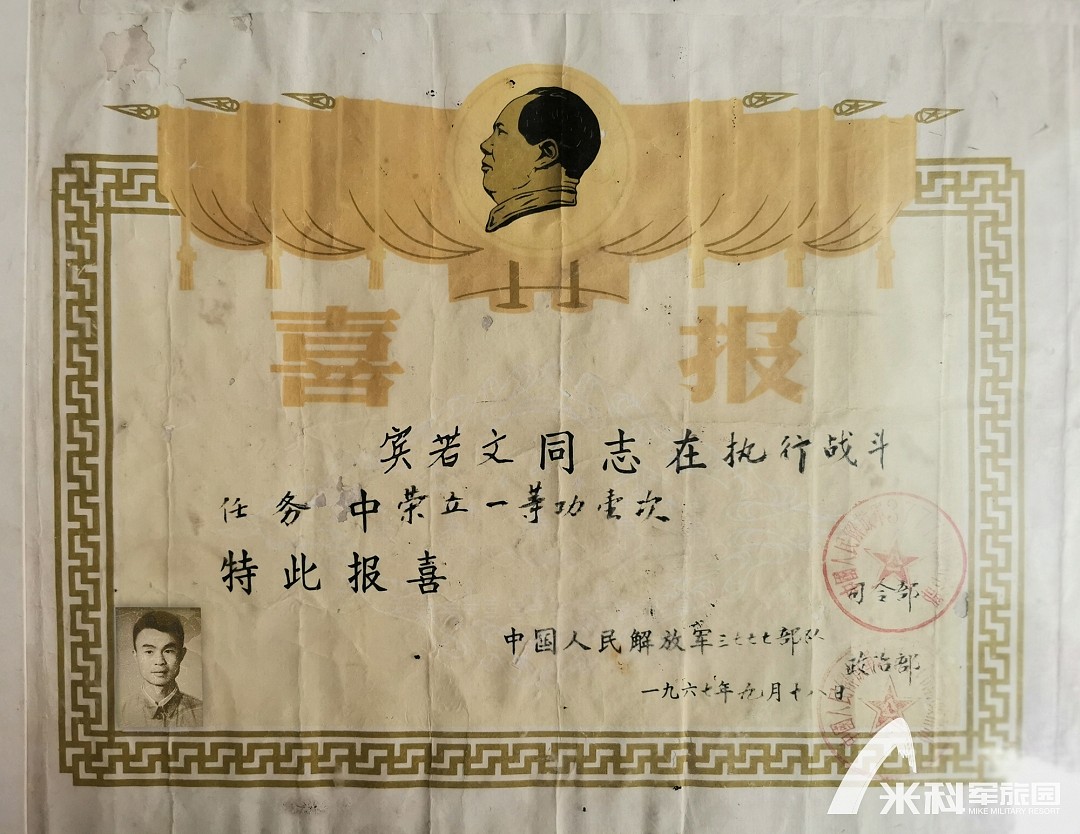 喜报
宾若文同志在执行战斗
任务中荣立一等功壹次
特此报喜
司令部
中国人民解放军三七七七部队
政治部
一九六七年九月十八日
中国人民解放军
中国人民
米科军旅园
MIKE MILITARY RESORT